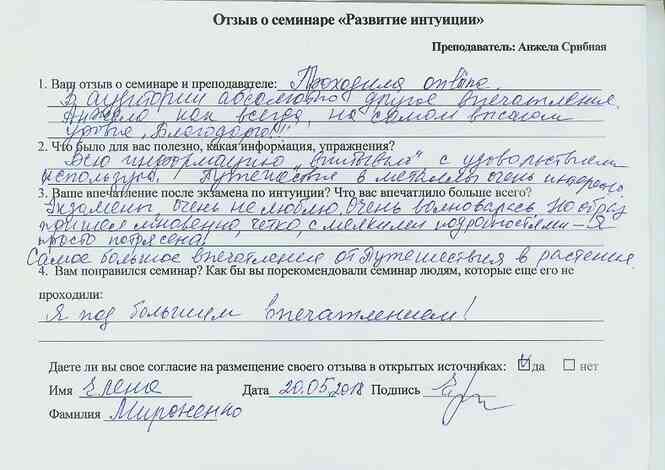 Отзыв о семинаре «Развитие интуиции»
Преподаватель: Анжела Срибная
1. Ваш отзыв о семинаре и преподавателе: Проходила online.
В аудитории абсолютно другое впечатление.
Анжела как всегда, на самом высоком
уровне. Благодарю!!!
2. Что было для вас полезно, какая информация, упражнения?
Всю информацию „впитывая" с удовольствием
использую. Путешествие в металл очень интересно.
3. Ваше впечатление после экзамена по интуиции? Что вас впечатлило больше всего?
Экзамены очень не люблю. Очень волновалась. Но образ
пришел мгновенно, четко, с мелкими подробностями – Я
просто потрясена!
Самое большое впечатление от Путешествия в растение.
4. Вам понравился семинар? Как бы вы порекомендовали семинар людям, которые еще его не
проходили:
Я под большим впечатлением!
Даете ли вы свое согласие на размещение своего отзыва в открытых источниках: да нет
Имя Елена Дата 20.05.2018 Подпись
Фамилия Мироненко